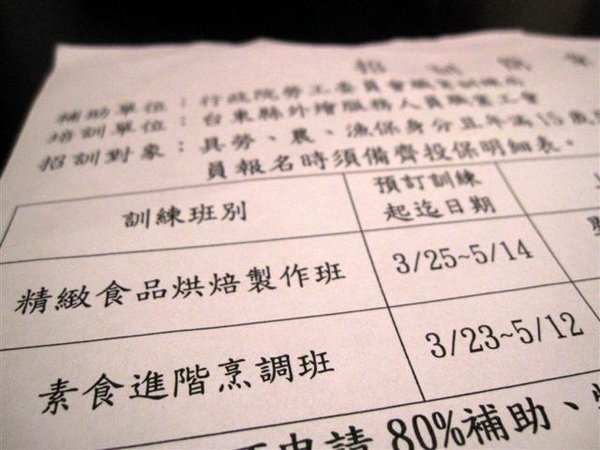 補助單位：行政院勞工委員會職業訓練局
培訓單位：台東縣外燴服務人員職業工會
招訓對象：具勞、農、漁保身分且年滿15歲
員報名時須備齊投保明細表。
訓練班別
預訂訓練
起迄日期
精緻食品烘焙製作班
3/25~5/14
素食進階烹調班
3/23~5/12
申請80%補助、